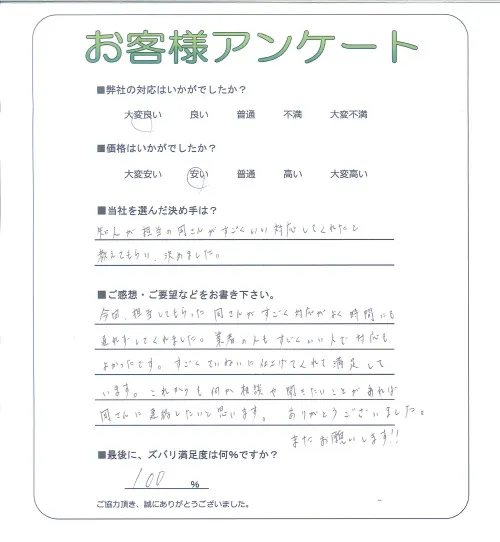 お客様アンケート
■弊社の対応はいかがでしたか？
大変良い 良い 普通 不満 大変不満
■価格はいかがでしたか？
大変安い 安い 普通 高い 大変高い
■当社を選んだ決め手は？
知人が担当の岡さんがすごくいい対応してくれたと
教えてもらい、決めました。
■ご感想・ご要望などをお書き下さい。
今回、担当してもらった岡さんがすごく対応がよく時間にも
遅れずしてくれました。業者の人もすごくいい人で対応も
よかったです。すごくていねいに仕上げてくれて満足して
います。これからも何か相談や聞きたいことがあれば
岡さんに連絡したいと思います。ありがとうございました。
またお願いします!!
■最後に、ズバリ満足度は何％ですか？
100 %
ご協力頂き、誠にありがとうございました。